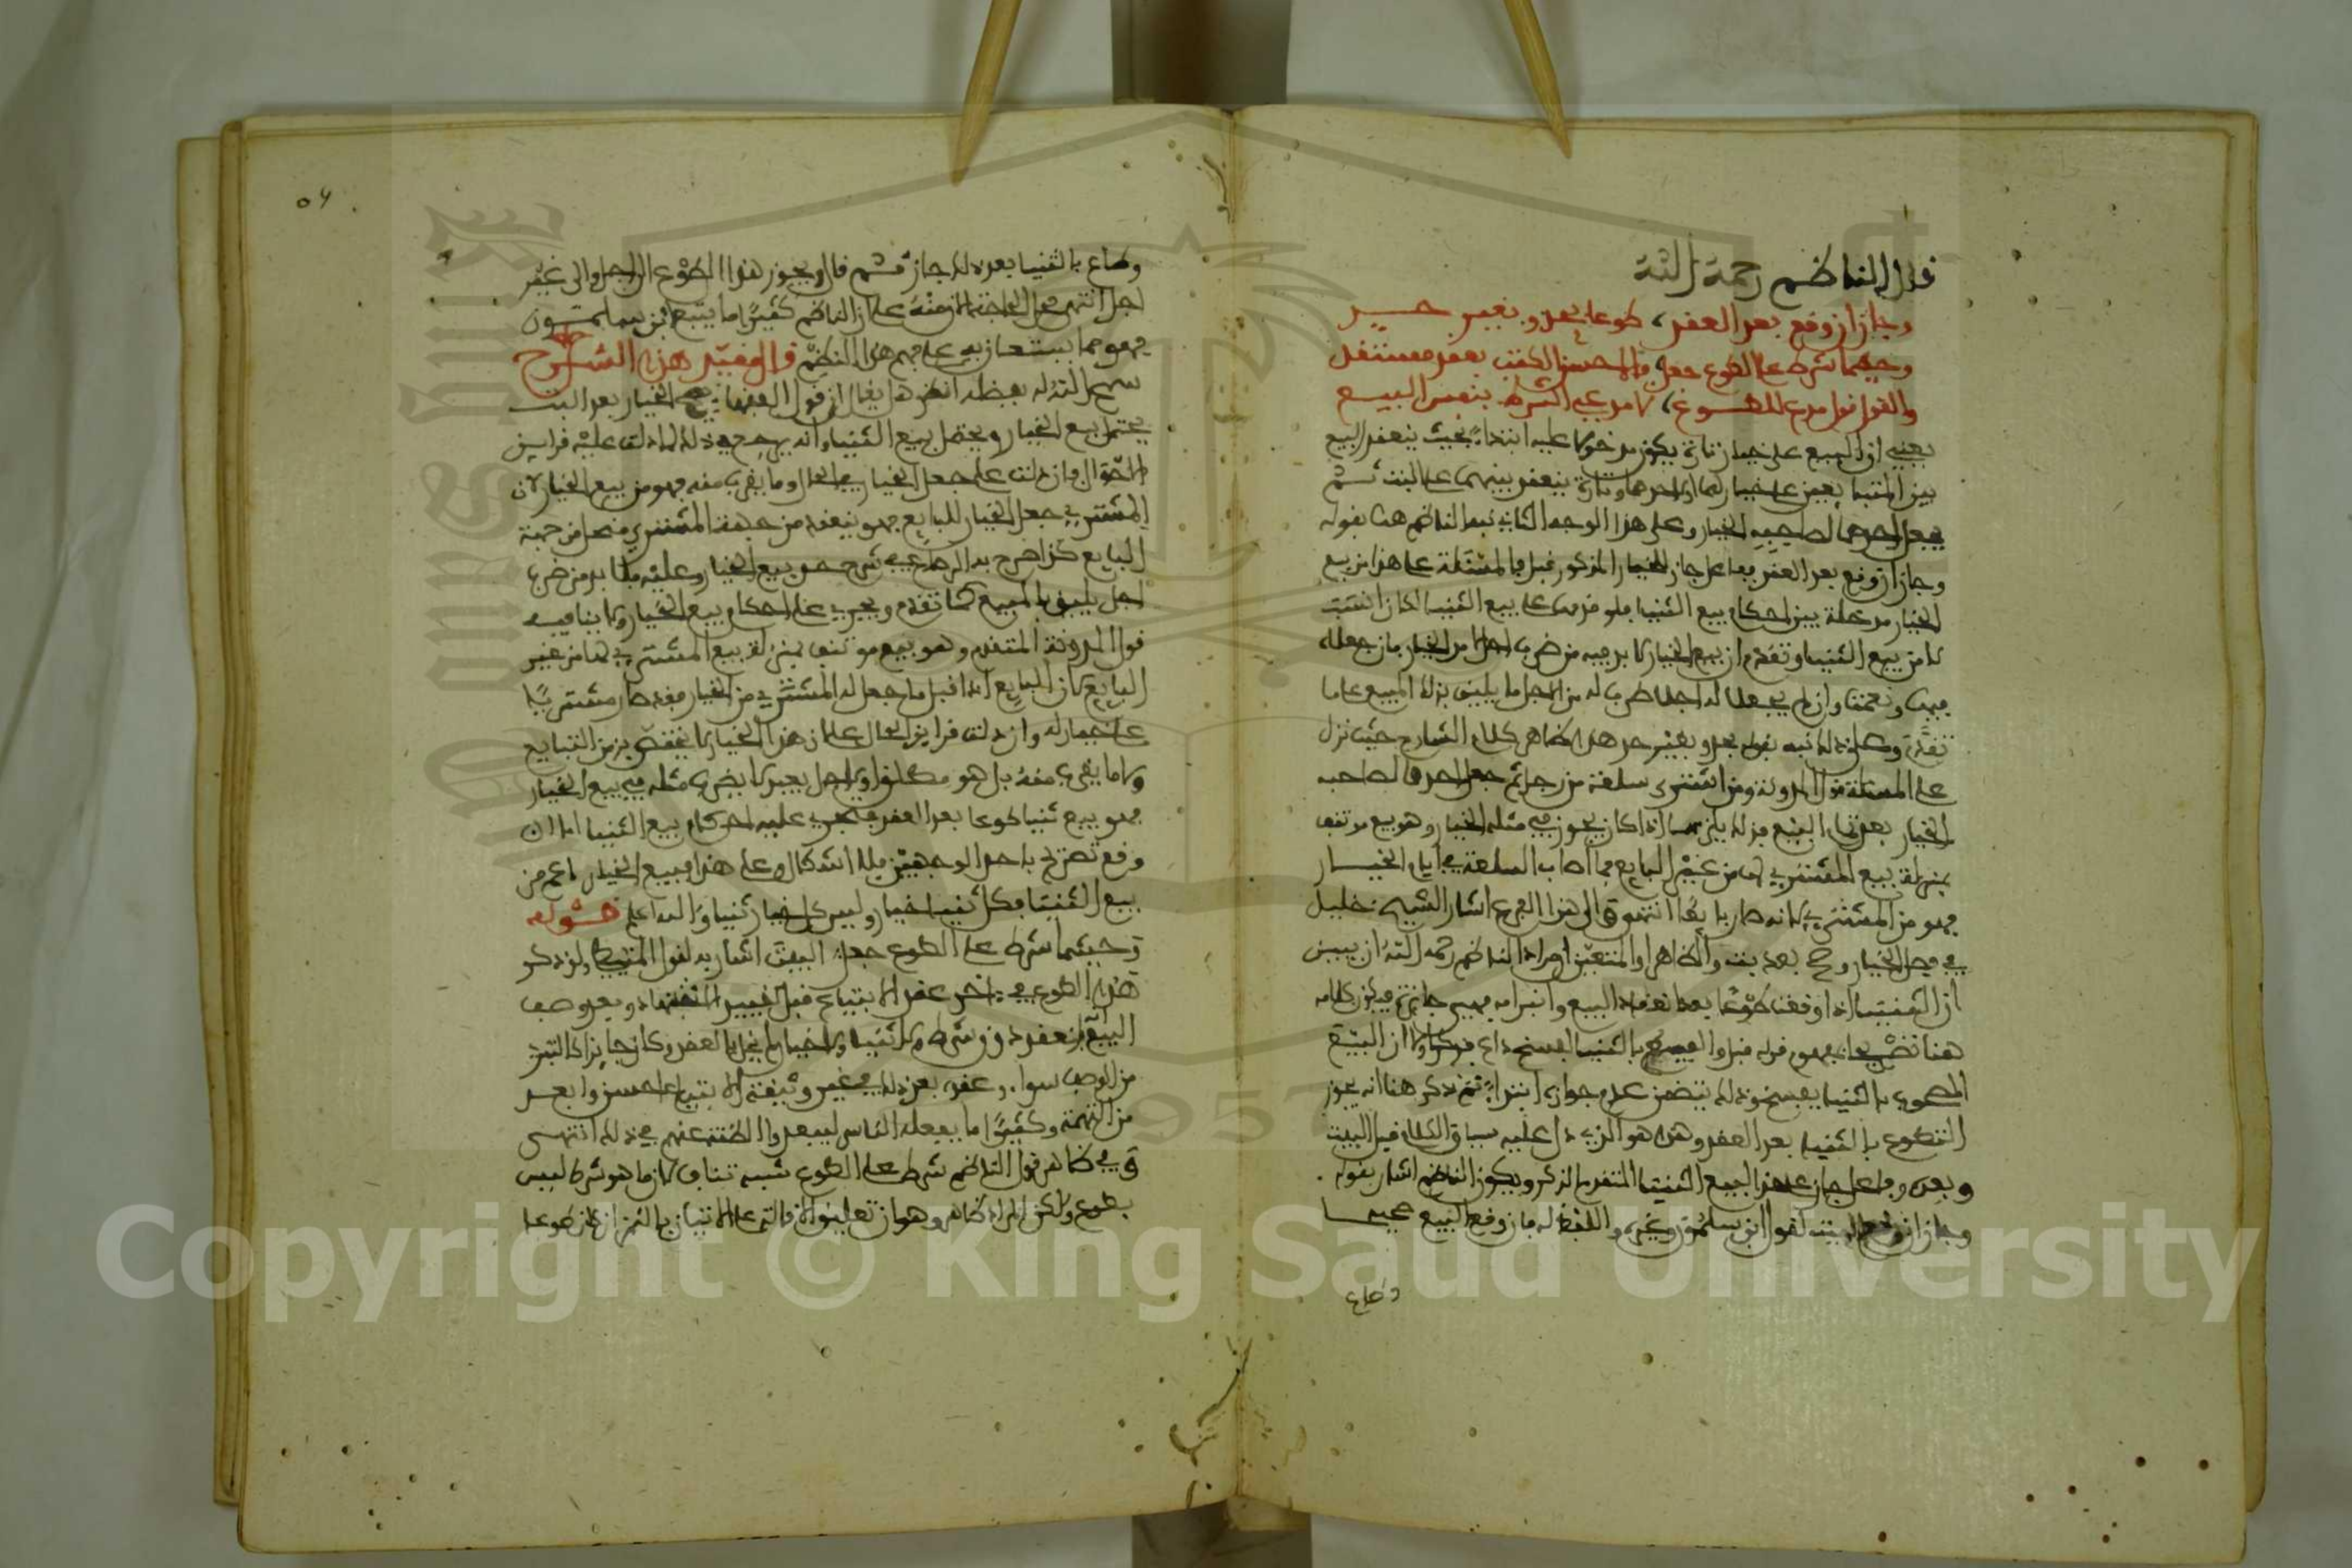 قال الناظم رحمة الله
وجاز ان وقع بعد العقد طوعا بحد وبغير حد
وحيثما شرط على الطوع جعل فالاحسن الكتب بعقد مستقل
والقول قول مدع للطوع لا مدعي الشرط بنفس البيع
يعني ان البيع على خيار تارة يكون مدخولا عليه ابتداء بحيث ينعقد البيع
بين المتبايعين على خيار لهما او لاحدهما وتارة ينعقد بينهما على البت ثم
يجعل احدهما لصاحبه الخيار وعلى هذا الوجه الثاني نبه الناظم هنا بقوله
وجاز ان وقع بعد العقد ففاعل جاز الخيار المذكور قبل فالمسئلة على هذا من بيع
الخيار مدخلة بين احكام بيع الثنيا فلو قدمت على بيع الثنيا لكان انسب
لا من بيع الثنيا وتقدم ان بيع الخيار لا بد فيه من ضرب اجل امد الخيار فان جعلاه
فبها ونعمت وان لم يجعلا له اجلا ضرب له من الاجل ما يليق بذلك المبيع على ما
تقدم وعلى ذلك نبه بقوله بحد وبغير حد هذا ظاهر كلام الشارح حيث نزل
على المسئلة قول المدونة ومن اشترى سلعة من رجل ثم جعل احدهما لصاحبه
الخيار بعد تمام البيع فذلك يلزمهما اذا كان يجوز في مثله الخيار وهو بيع موتنف
بمنزلة بيع المشتري لها من غير البايع فما اصاب السلعة في ايام الخيار
فهو من المشتري لانه صار بايعا انتهى والى هذا الفرع اشار الشيخ خليل
في فصل الخيار وصح بعد بت والظاهر او المتعين ان مراد الناظم رحمه الله ان يبين
ان الثنيا اذا وقعت طوعا بعد انعقاد البيع وانبرامه فهي جائزة فيكون كلامه
هنا تصريحا بمفهوم قوله قبل والفسخ بالثنيا الفسخ داع
بالثنيا يفسخ وذلك يتضمن عدم جوازه ابتداء ثم ذكر هنا انه يجوز
التطوع بالثنيا بعد العقد وهذا هو الذي دل عليه سياق الكلام قبل البيت
وبعده وفاعل جاز على هذا البيع الثنيا المتقدم الذكر ويكون الناظم اشار بقوله
وجاز ان وقع البيت لقول ابن سلمون وغيره واللفظ له فان وقع البيع صحيحا
وطاع
٥٤
وطاع بالثنيا بعد ذلك جاز ثم قال ويجوز هذا الطوع الى اجل والى غير
اجل انتهى محل الحاجة منه على ان الناظم كثيرا ما يتبع ابن سلمون
فهو مما يستعان به على فهم هذا النظم قال مقيد هذا الشرح
سمح الله له بفضله انظر هل يقال ان قول الفقهاء يصح الخيار بعد البت
يحتمل بيع الخيار ويحتمل بيع الثنيا وانه يرجع في ذلك لما دلت عليه قراين
الاحوال فان دلت على جعل الخيار في الحال وما يقرب منه فهو من بيع الخيار لان
المشتري جعل الخيار للبايع فهو ينعقد من جهة المشتري منحل من جهة
البايع كذا صرح به الرصاع في شرح حدود بيع الخيار وعليه فلا بد من ضرب
اجل يليق بالمبيع كما تقدم ويجري على احكام بيع الخيار ولا ينافيه
قول المدونة المتقدم وهو بيع موتنف بمنزلة بيع المشتري لها من غير
البايع لان البايع اذا قبل ما جعل له المشتري من الخيار فقد صار مشتريا
على خيار له وان دلت قراين الحال على ان هذا الخيار لا يختص بزمن التبايع
ولا ما يقرب منه بل هو مطلقا او لاجل بعيد لا يضرب مثله في بيع الخيار
فهو بيع ثنيا طوعا بعد العقد فتجري عليه احكام بيع الثنيا اما ان
وقع تصريح باحد الوجهين فلا اشكال وعلى هذا فبيع الخيار اعم من
بيع الثنيا فكل ثنيا خيار وليس كل خيار ثنيا والله اعلم قوله
وحيثما شرط على الطوع جعل البيت اشار به لقول المتيطي ولو ذكر
هذا الطوع في اخر عقد الابتياع قبل تقييد الاشهاد وبعد وصف
البيع بانعقد دون شرط ولا ثنيا ولا خيار لم يخل بالعقد وكان جايزا
من الوصف سواء وعقده بعد ذلك في غير وثيقة الابتياع احسن وابعد
من التهمة وكثيرا ما يفعله الناس ليبعدوا الظنة عنهم في ذلك انتهى
وفي ظاهر قول الناظم شرط على الطوع شبه تناف لان ما هو شرط ليس
بطوع ولكن المراد ظاهر وهو ان تعليق الاقالة على الاتيان بالثمن ان كان طوعا